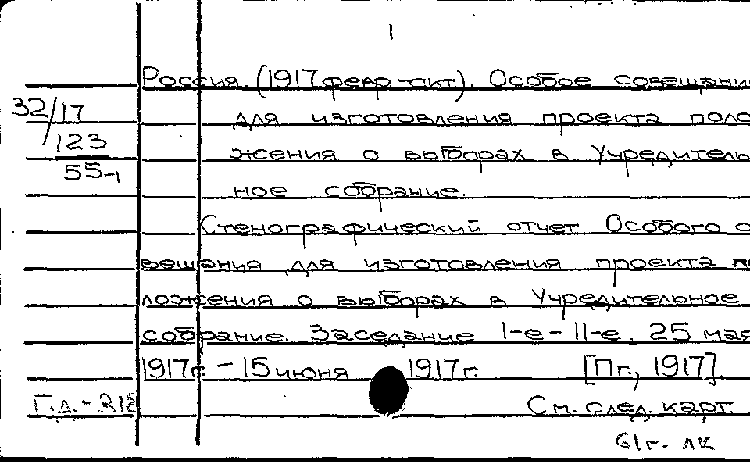 1
Россия (1917 февр.-окт). Особое совещание
32/17 для изготовления проекта поло-
123 жения о выборах в Учредитель-
55-1 ное собрание.
Стенографический отчет Особого со
вещания для изготовления проекта по
ложения о выборах в Учредительное
собрание. Заседание 1-е - 11-е, 25 мая
1917г. - 15 июня 1917г. [Пг., 1917].
См. след. карт
61г. ЛК